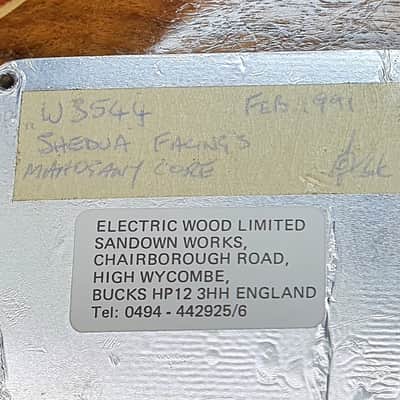 W3544 FEB 1991
SHEDUA FACINGS
MAHOGANY CORE
ELECTRIC WOOD LIMITED
SANDOWN WORKS,
CHAIRBOROUGH ROAD,
HIGH WYCOMBE,
BUCKS HP12 3HH ENGLAND
Tel: 0494 - 442925/6